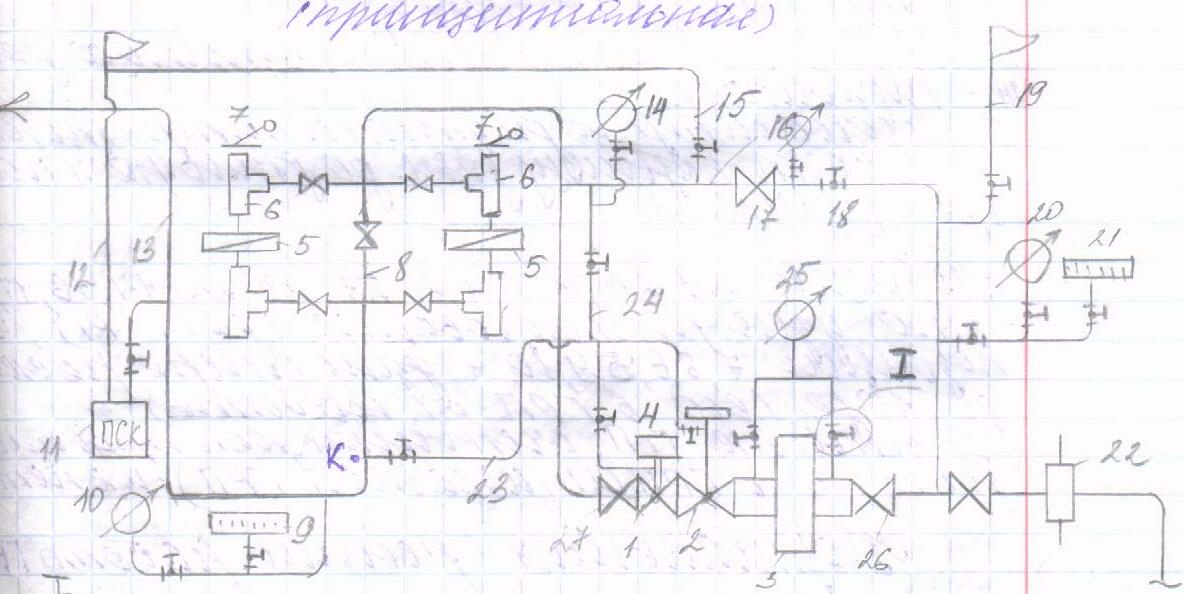 (принципиальная)
14
15
16
19
7
7
6
6
5
5
17
18
20
21
12
13
8
24
25
I
11
ПСК
4
К
22
10
9
23
27
1
2
3
26